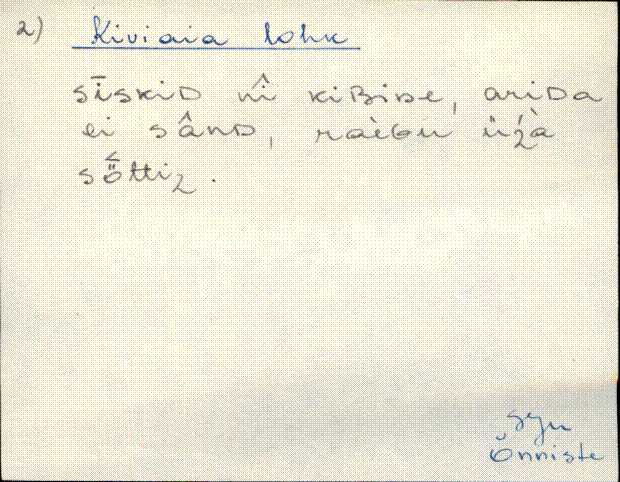 2) Kiviaia lohk
sīskiD nî kiBiDe, ariDa
ei sânD, raèGu üʒ̀à
sö̂ttiz.
Syn
Õnniste